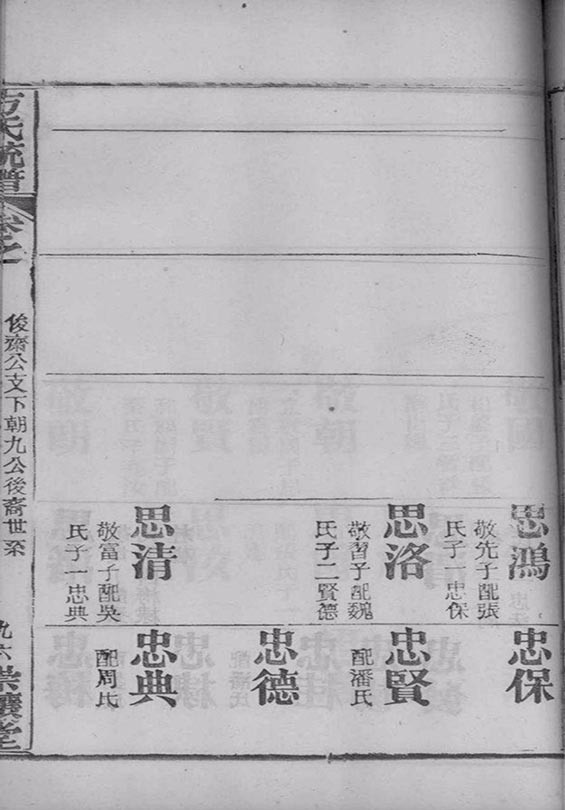 思鴻
敬先子配張
氏子一忠保
思洛
敬
子配魏
氏子二賢德
思清
敬富子配吳
氏子一忠典
忠保
忠賢
配潘氏
忠德
忠典
配周氏
方氏統譜
卷之
俊齋公支下朝九公後裔世系
九六
堂